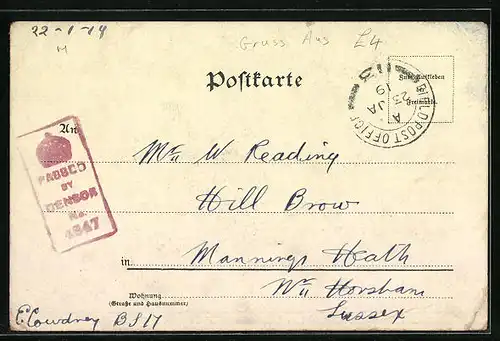 22-1-19
M
Gruss Aus
£4
Postkarte
Zum Aufkleben
der
Freimarke.
FIELD POST OFFICE
A
23 JA
19
An
PASSED
BY
CENSOR
No.
4847
Mr W Reading
Hill Brow
in Mannings Heath
Nr Horsham
Sussex
Wohnung
(Straße und Hausnummer)
E. Cowdrey BS17